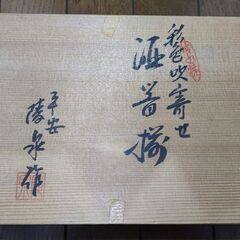 彩色吹寄せ
酒器揃
平安
陵泉作